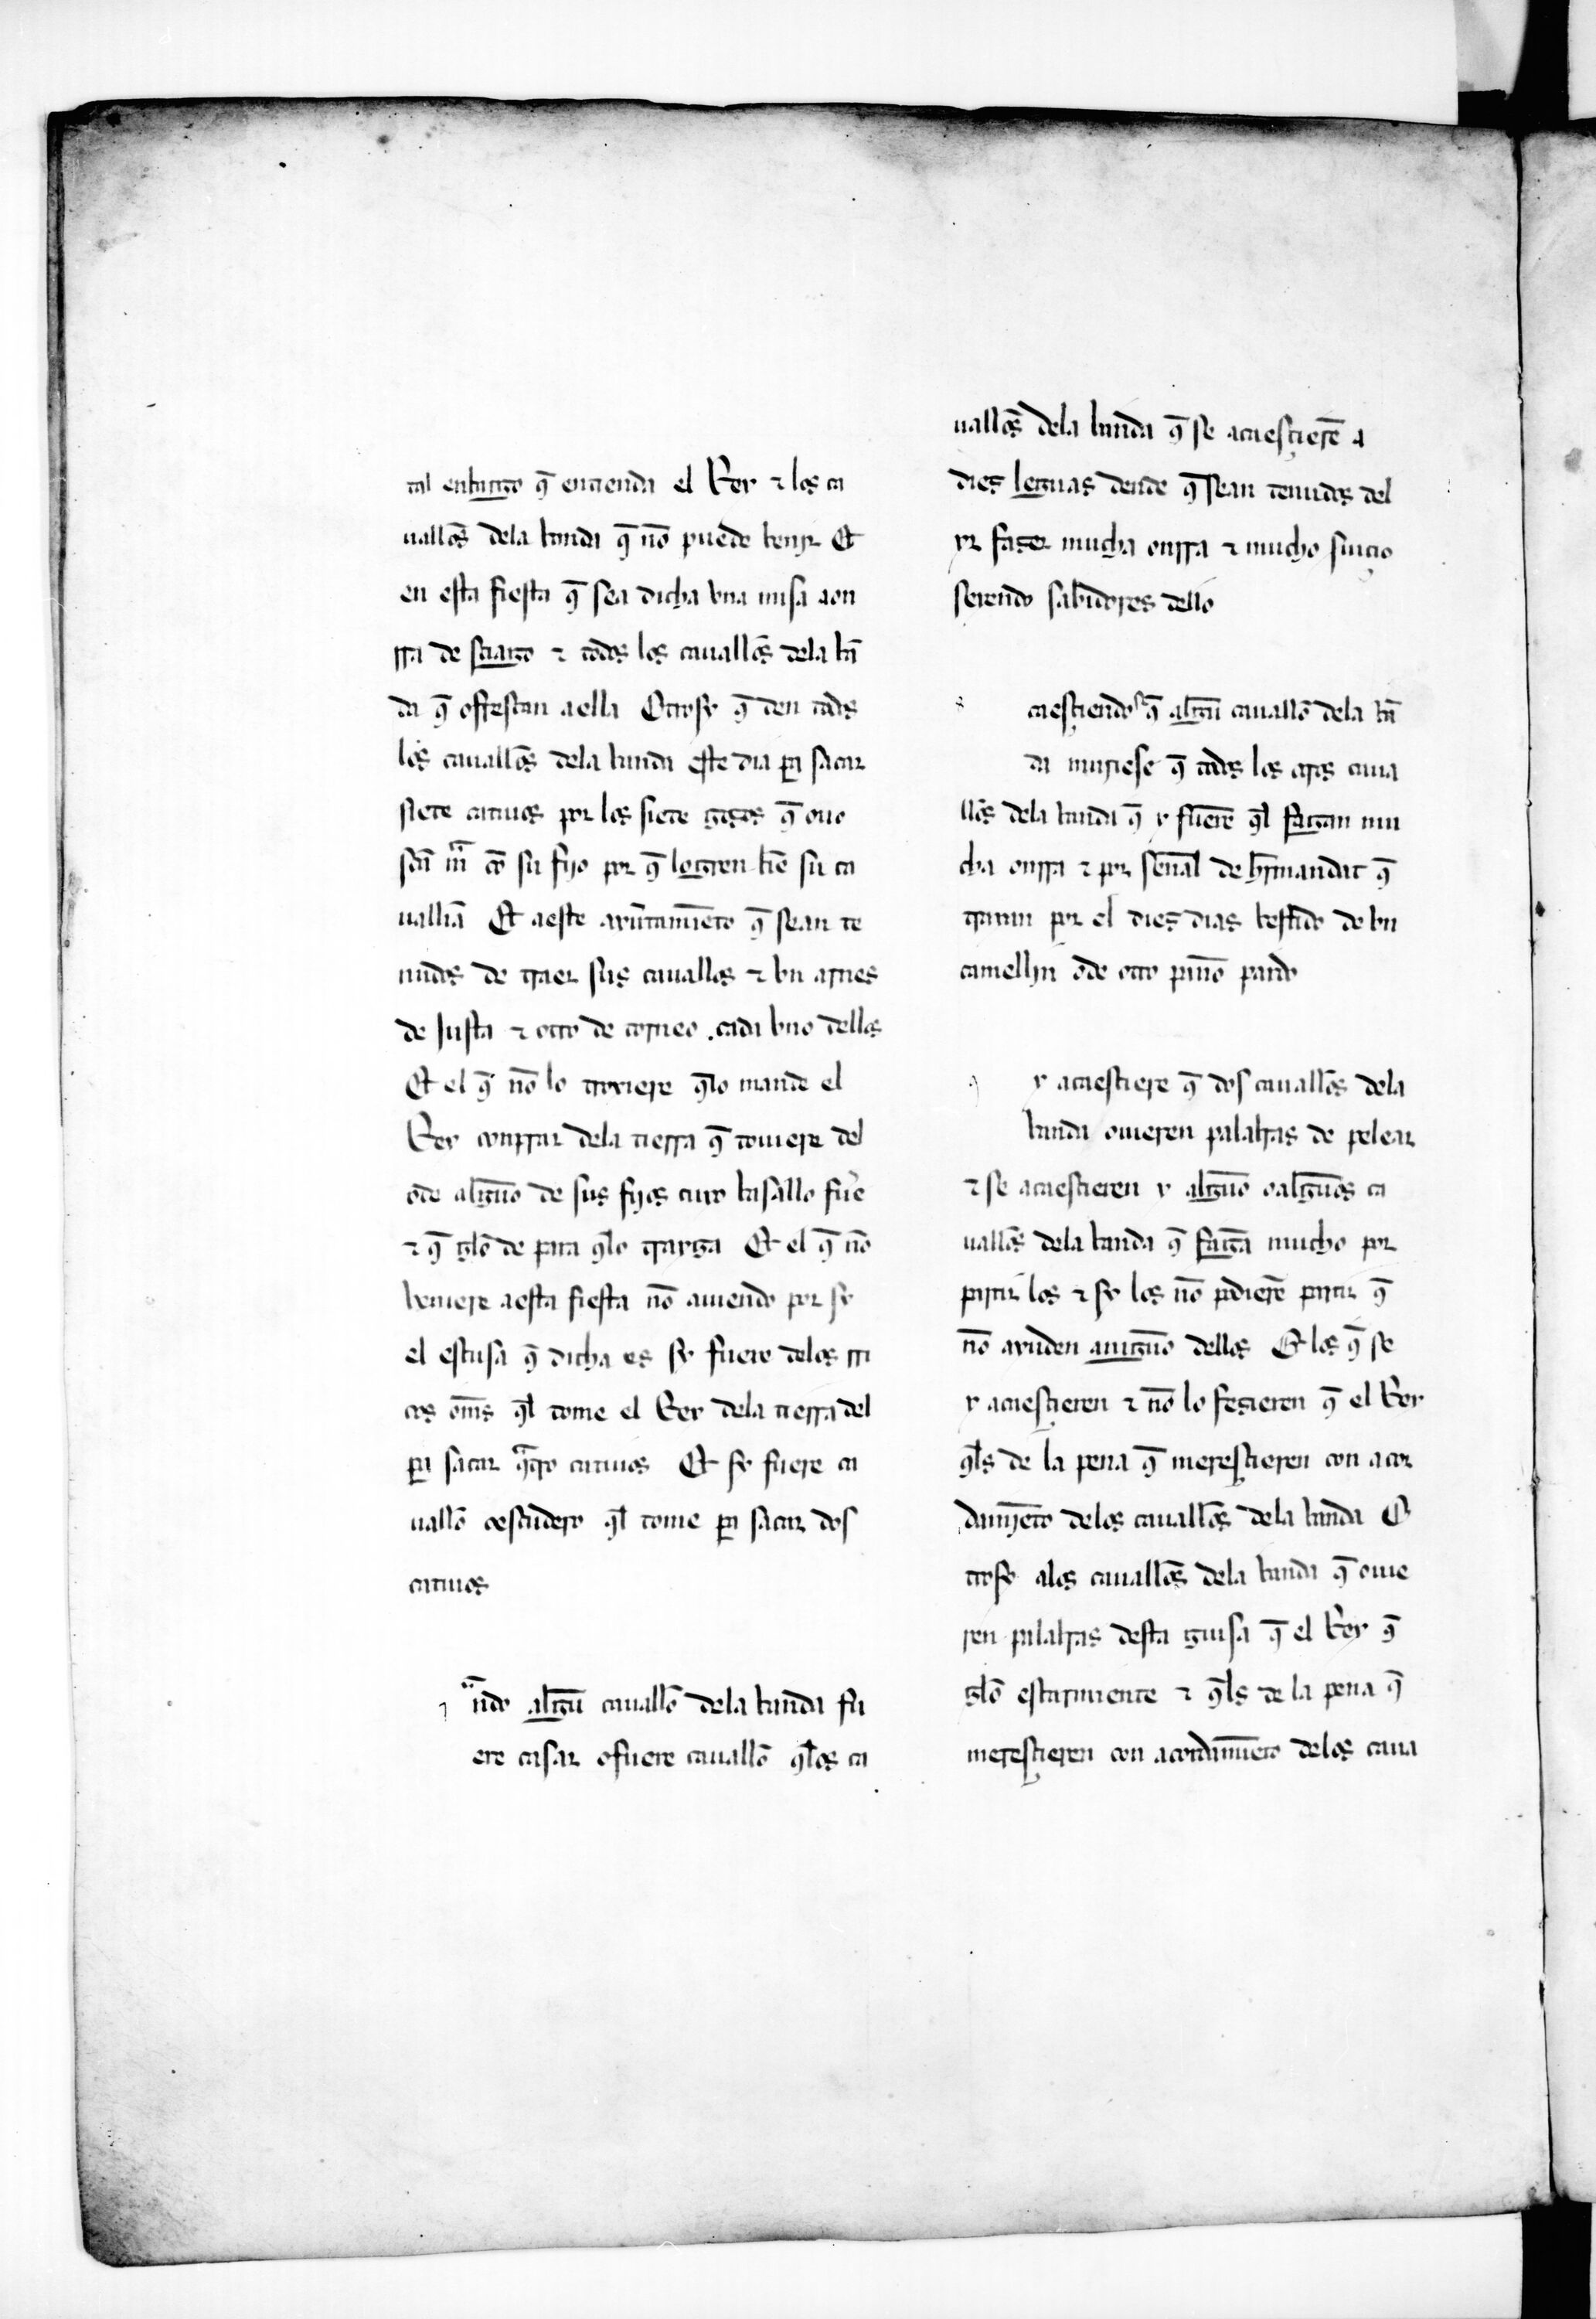 tal enbargo q̃ entienda el Rey ⁊ los ca
uallōs dela banda q̃ nõ puede benir Et
en esta fiesta q̃ sea dicha vna misa aon
rra de sciago ⁊ todos los cauallōs dela bã
da q̃ offrescan aella Otrosy q̃ den todos
los cauallōs dela banda este dia pa sacar
siete catiuos por los siete gozos q̃ ouo
scã mã cõ su fijo por q̃ logren biẽ su ca
uallia Et aeste ayũtamiẽto q̃ sean te
nudos de traer sus cauallos ⁊ vn arnes
de Justa ⁊ otro de torneo . cada vno dellos
Et el q̃ nõ lo troxiere q̃lo mande el
Rey conprar dela tierra q̃ touiere del
ode algũo de sus fijos cuyo basallo fu'e
⁊ q̃ glō de para q̃lo trayga Et el q̃ nõ
veniere aesta fiesta nõ auiendo por sy
el escusa q̃ dicha es sy fuere delos rri
cos om̃s q̃l tome el Rey dela tierra del
pa sacar q̃tro catiuos Et sy fuere ca
uallō oescudero q̃l tome pa sacar dos
catiuos
q ãndo algũ cauallō dela banda fu
ere casar ofuere cauallō q̃los ca
uallōs dela banda q̃ se acaesçierẽ a
dies leguas dende q̃ sean tenudos del
yr faser mucha onrra ⁊ mucho suiçio
seyendo sabidores dello
caesçiendo q̃ algũ cauallō dela bã
da muriese q̃ todos los otros caua
llōs dela banda q̃ y fuerẽ q̃l fagan mu
cha onrra ⁊ por señal de hr̃mandat q̃
trayan por el dies dias bestido de vn
camellin ode otro pañõ pardo
y acaesçiere q̃ dos cauallōs dela
banda ouieren palabras de pelear
⁊ se acaesçieren y algũo oalgũos ca
uallōs dela banda q̃ fagã mucho por
partir los ⁊ sy los nõ podierẽ partir q̃
nõ ayuden anigũo dellos Et los q̃ se
y acaesçieren ⁊ nõ lo fesieren q̃ el Rey
q̃ls de la pena q̃ meresçieren con acor
damyẽto delos cauallōs dela banda O
trosy alos cauallōs dela banda q̃ ouie
ren palabras desta guisa q̃ el Rey q̃
glō escarmiente ⁊ q̃ls de la pena q̃
meresçieren con acordamiẽto delos caua